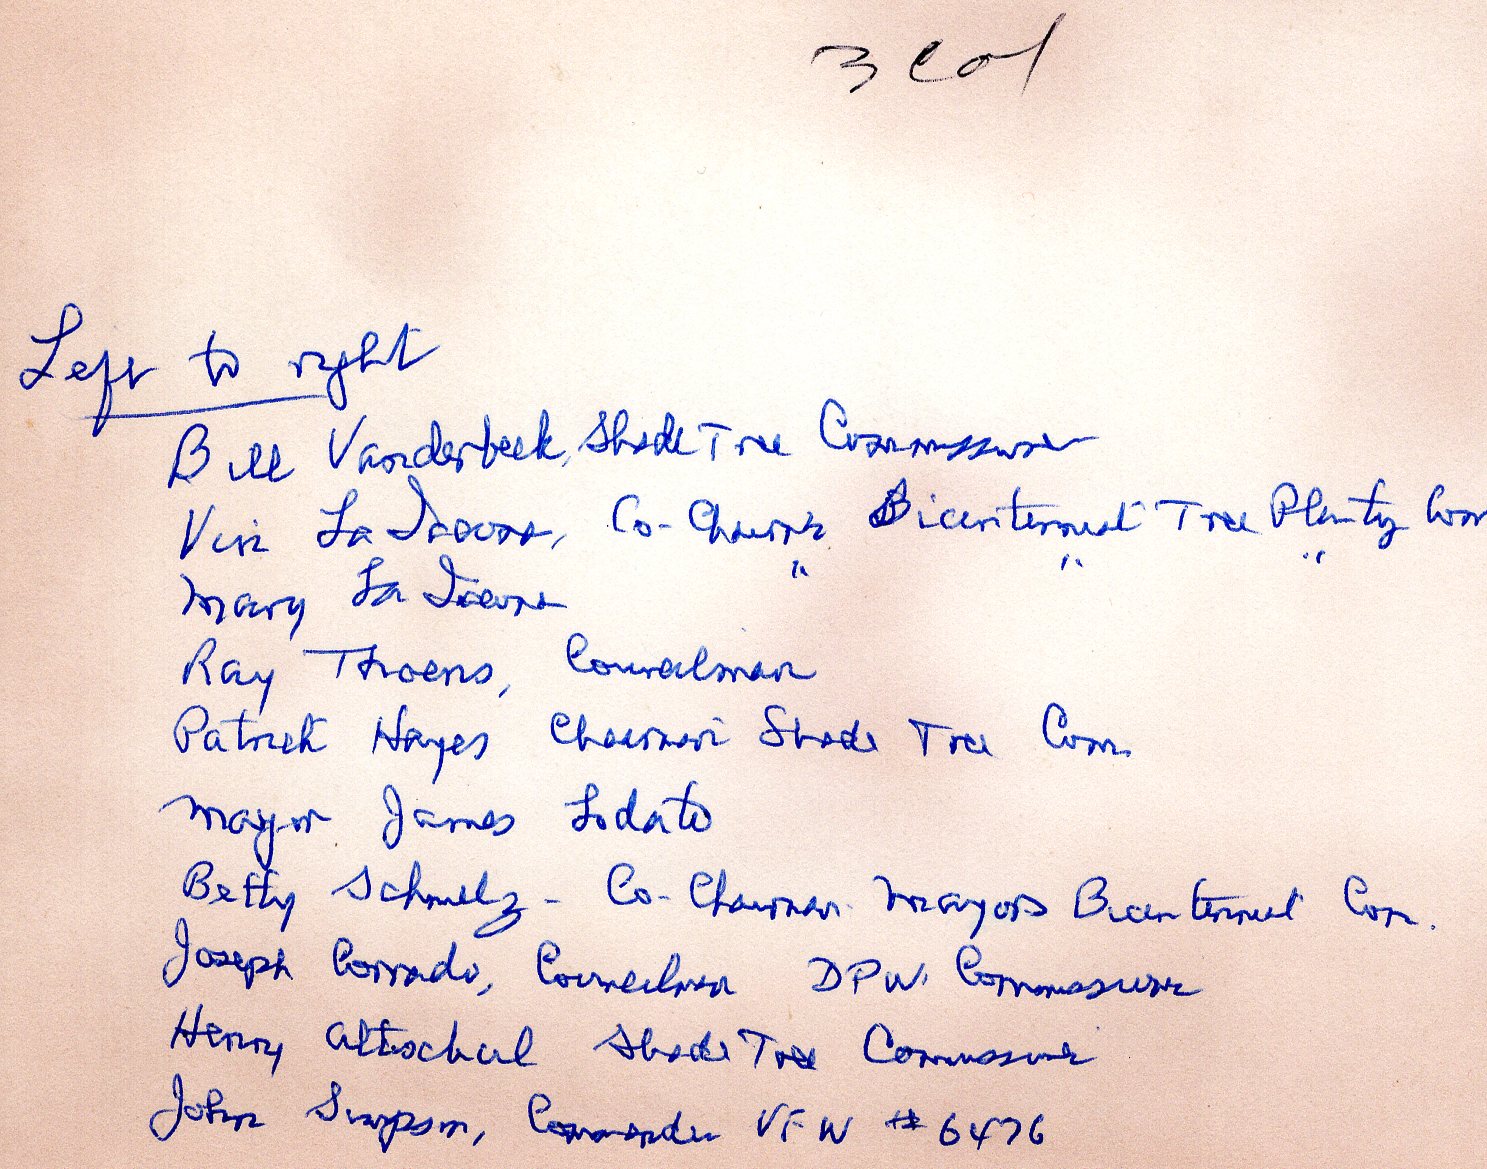 3 col
Left to right
Bill Vanderbeek, Shade Tree Commissioner
Vin La Iacona, Co-Chairman Bicentennial Tree Planting Com
" " "
Mary La Iacona
Ray Thoens, Councilman
Patrick Hayes Chairman Shade Tree Com.
Mayor James Lodato
Betty Schmelz - Co-Chairman Mayors Bicentennial Com.
Joseph Corrado, Councilman DPW Commissioner
Henry Altschul Shade Tree Commissioner
John Simpson, Commander VFW # 6476